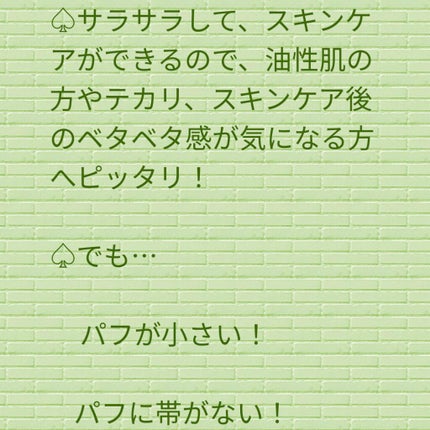 ♤サラサラして、スキンケ
アができるので、油性肌の
方やテカリ、スキンケア後
のベタベタ感が気になる方
へピッタリ！
♤でも…
パフが小さい！
パフに帯がない！